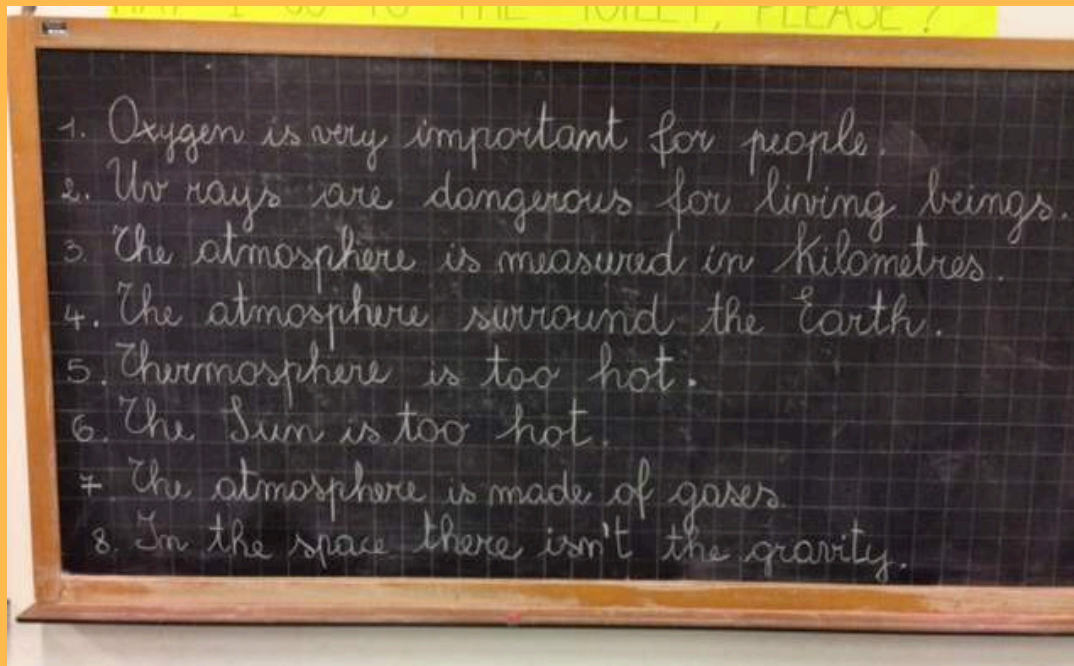 MAY I GO TO THE TOILET, PLEASE?
1. Oxygen is very important for people.
2. Uv rays are dangerous for living beings.
3. The atmosphere is measured in Kilometres.
4. The atmosphere surround the Earth.
5. Thermosphere is too hot.
6. The Sun is too hot.
7 The atmosphere is made of gases
8. In the space there isn't the gravity.